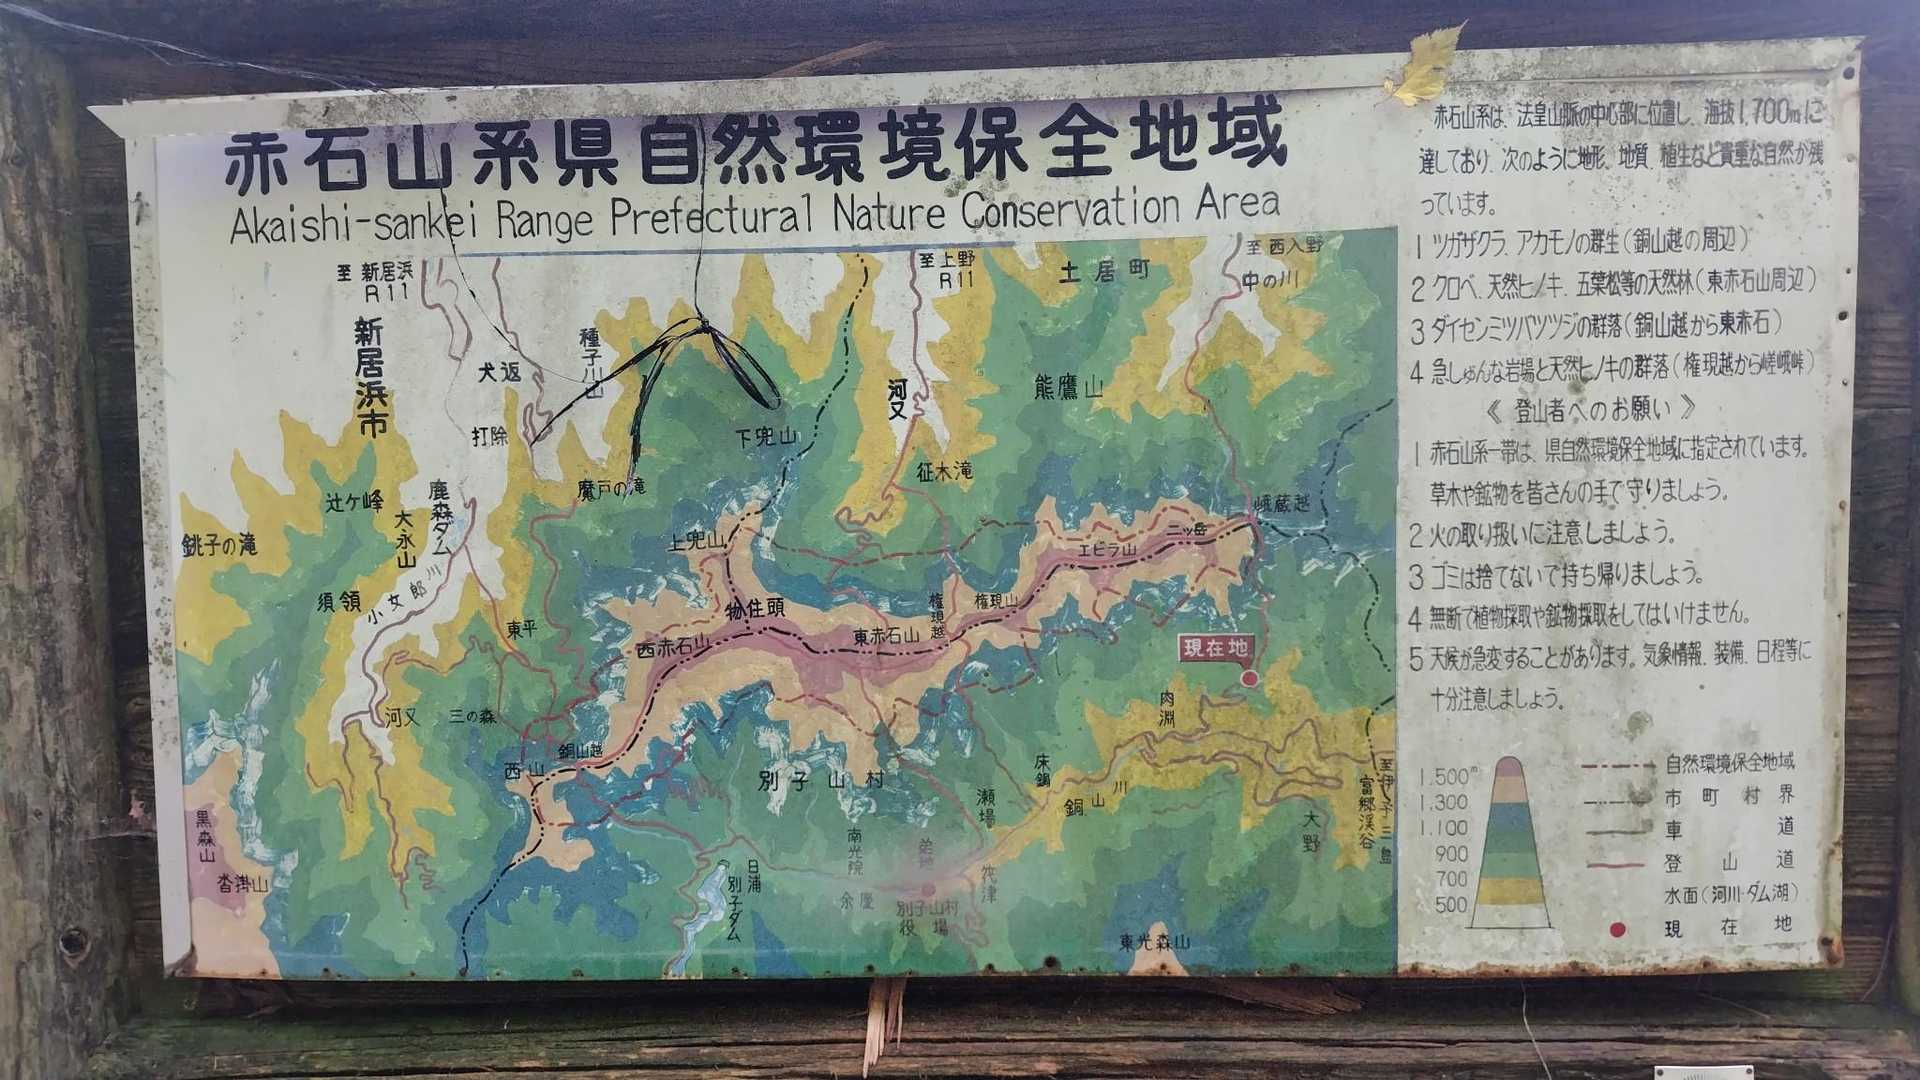 赤石山系県自然環境保全地域
Akaishi-sankei Range Prefectural Nature Conservation Area
赤石山系は、法皇山脈の中心部に位置し、海抜1,700mに
達しており、次のように地形、地質、植生など貴重な自然が残
っています。
1 ツガザクラ、アカモノの群生(銅山越の周辺)
2 クロベ、天然ヒノキ、五葉松等の天然林(東赤石山周辺)
3 ダイセンミツバツツジの群落(銅山越から東赤石)
4 急しゅんな岩場と天然ヒノキの群落(権現越から嵯峨峠)
《 登山者へのお願い 》
1 赤石山系一帯は、県自然環境保全地域に指定されています。
草木や鉱物を皆さんの手で守りましょう。
2 火の取り扱いに注意しましょう。
3 ゴミは捨てないで持ち帰りましょう。
4 無断で植物採取や鉱物採取をしてはいけません。
5 天候が急変することがあります。気象情報、装備、日程等に
十分注意しましょう。
至 新居浜
R11
至 上野
R11
土居町
至 西入野
中の川
新居浜市
犬返
種子川山
河又
熊鷹山
打除
下兜山
魔戸の滝
征木滝
辻ケ峰
鹿森ダム
大永山
銚子の滝
上兜山
峨蔵越
二ッ岳
エビラ山
須領
小女郎川
物住頭
権現越
権現山
東平
西赤石山
東赤石山
現在地
肉淵
河又
三の森
銅山越
西山
別子山村
床鍋
瀬場
銅山川
至伊予三島
富郷渓谷
大野
黒森山
沓掛山
南光院
弟地
筏津
余慶
別子山村
役場
日浦
別子ダム
東光森山
1.500m
1.300
1.100
900
700
500
自然環境保全地域
市町村界
車道
登山道
水面(河川・ダム湖)
現在地